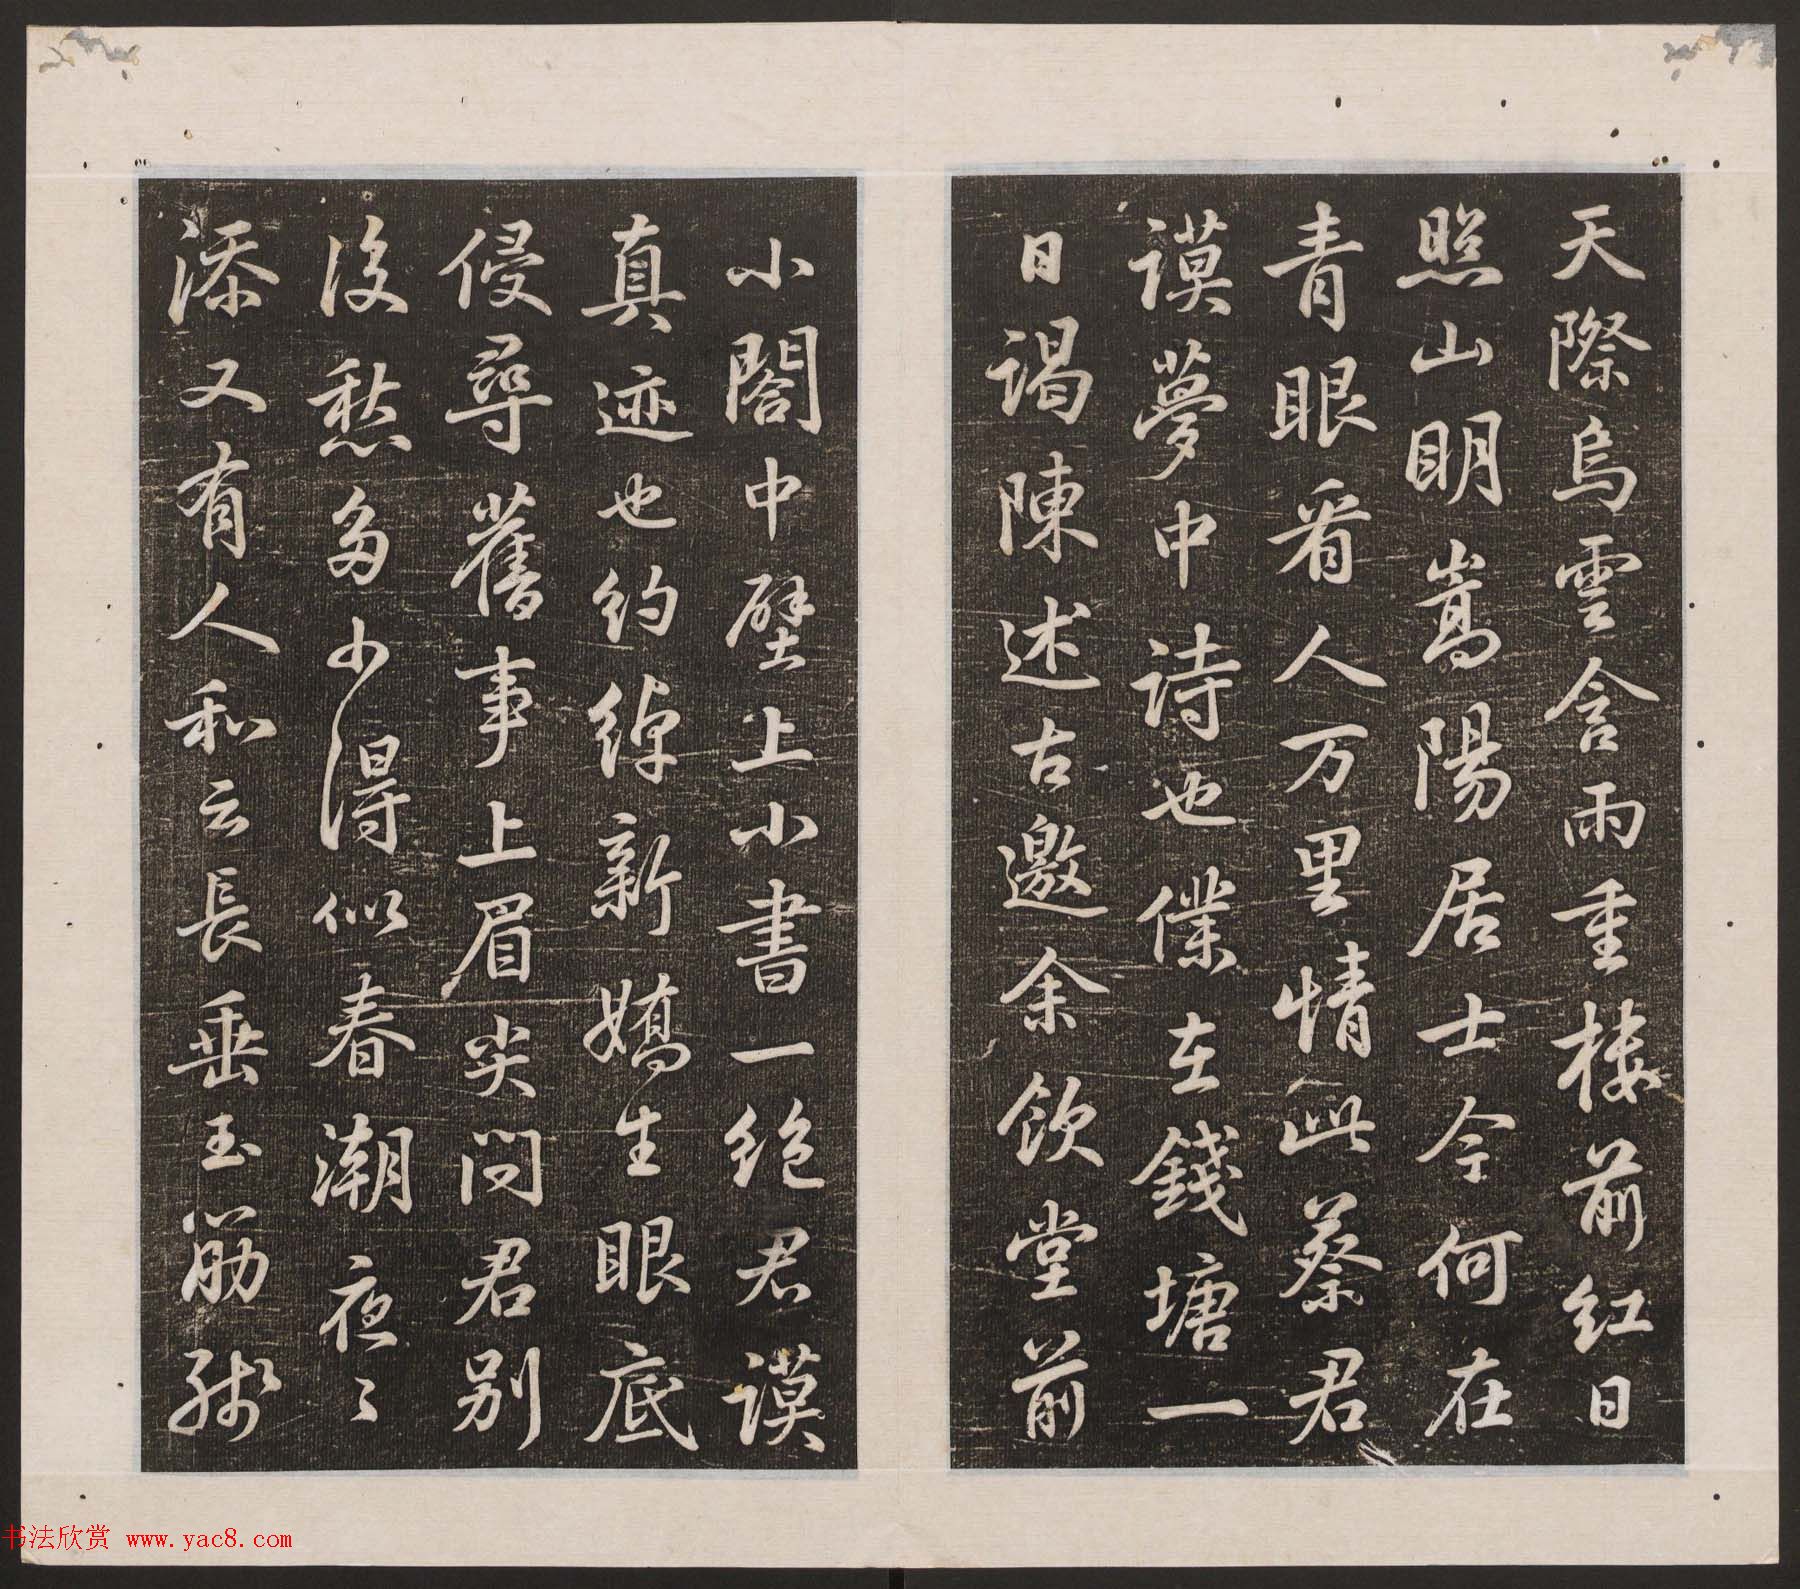 天際烏雲含雨重樓前紅日
照山明嵩陽居士今何在
青眼看人万里情此蔡君
謨夢中詩也僕在錢塘一
日謁陳述古邀余飲堂前
小閣中壁上小書一絶君謨
真迹也約綽新嬌生眼底
侵尋舊事上眉尖問君別
後愁多少得似春潮夜〻
添又有人和云長垂玉筋殘
书法欣赏 www.yac8.com